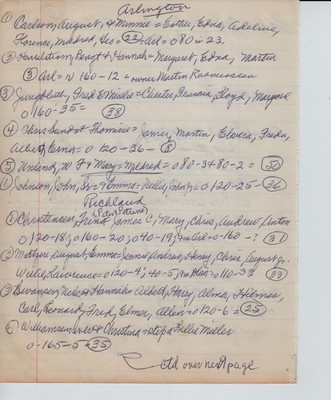 Arlington
① Paulson, August, & Minnie = Esther, Edna, Adeline,
Florence, Mildred, Geo = 22 = Arl = 080 in 23.
② Harrildstson, Bengt & Hannah = Margaret, Edna, Martin
③ Arl = N 160-12 = owner Martin Rasmussen
③ Josephbeth, Fred & Minnie = Chester, Francis, Floyd, Margaret
0160-35 = 38
④ Chris Lund & Thomine = James, Martin, Elvera, Freda,
Albert, Erma = 0 120-36- 8
⑤ Unland, W F & Mary = Mildred = 080-34-80-2 = 50
⑥ Johnson, John, Sr = Emma = Nellie, John Jr = 0 120-25- 36
Richland
① Christensen, Trina, James C, Mary, Chris, Andrew, Anton
0120-18, 0160-20, 040-19, Arl-0160 -? 31
② Matzen, August, Emma = Andrew, Henry, Chris, August Jr.
Willie, Lawrence = 0120-4, 40-5, 0110-33 33
③ Swanson, Nels & Hannah = Albert, Harry, Alma, Hilmer,
Carl, Bernard, Fred, Elmer, Allen = 0120-6 = 25
④ Williamson & Christina = Miller
0-165-5 = 35
ctd over next page